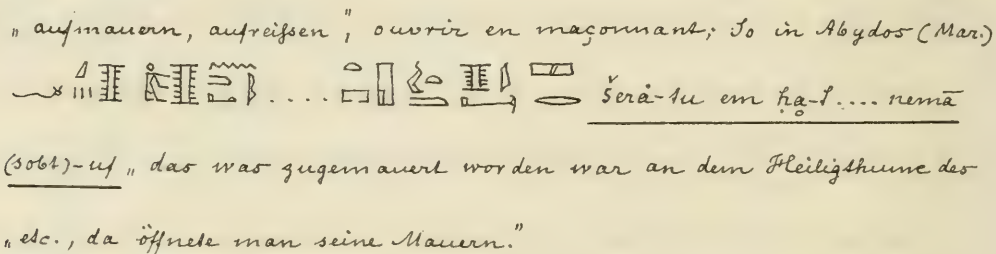 „aufmauern, aufreifsen”, ouvrir en maçonnant; So in Abydos (Mar.)
.... šerȧ-tu em ḥa-t.... nemā
(sobt)-uf „das was zugemauert worden war an dem Heiligthume des
„etc., da öffnete man seine Mauern.”